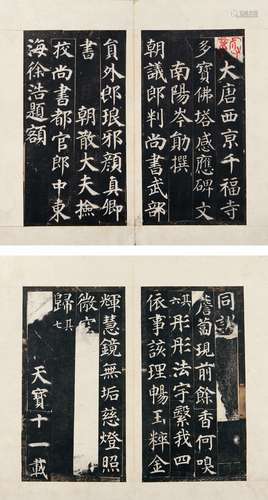 大唐西京千福寺
多寶佛塔感應碑文
南陽岑勛撰
朝議郎判尚書武部
員外郎琅邪顏真卿
書 朝散大夫撿
校尚書都官郎中東
海徐浩題額
同謬
薝蔔現前餘香何嗅
其六彤彤法宇繫我四
依事該理暢玉粹金
輝慧鏡無垢慈燈照
微空
歸其七
天寶十一載